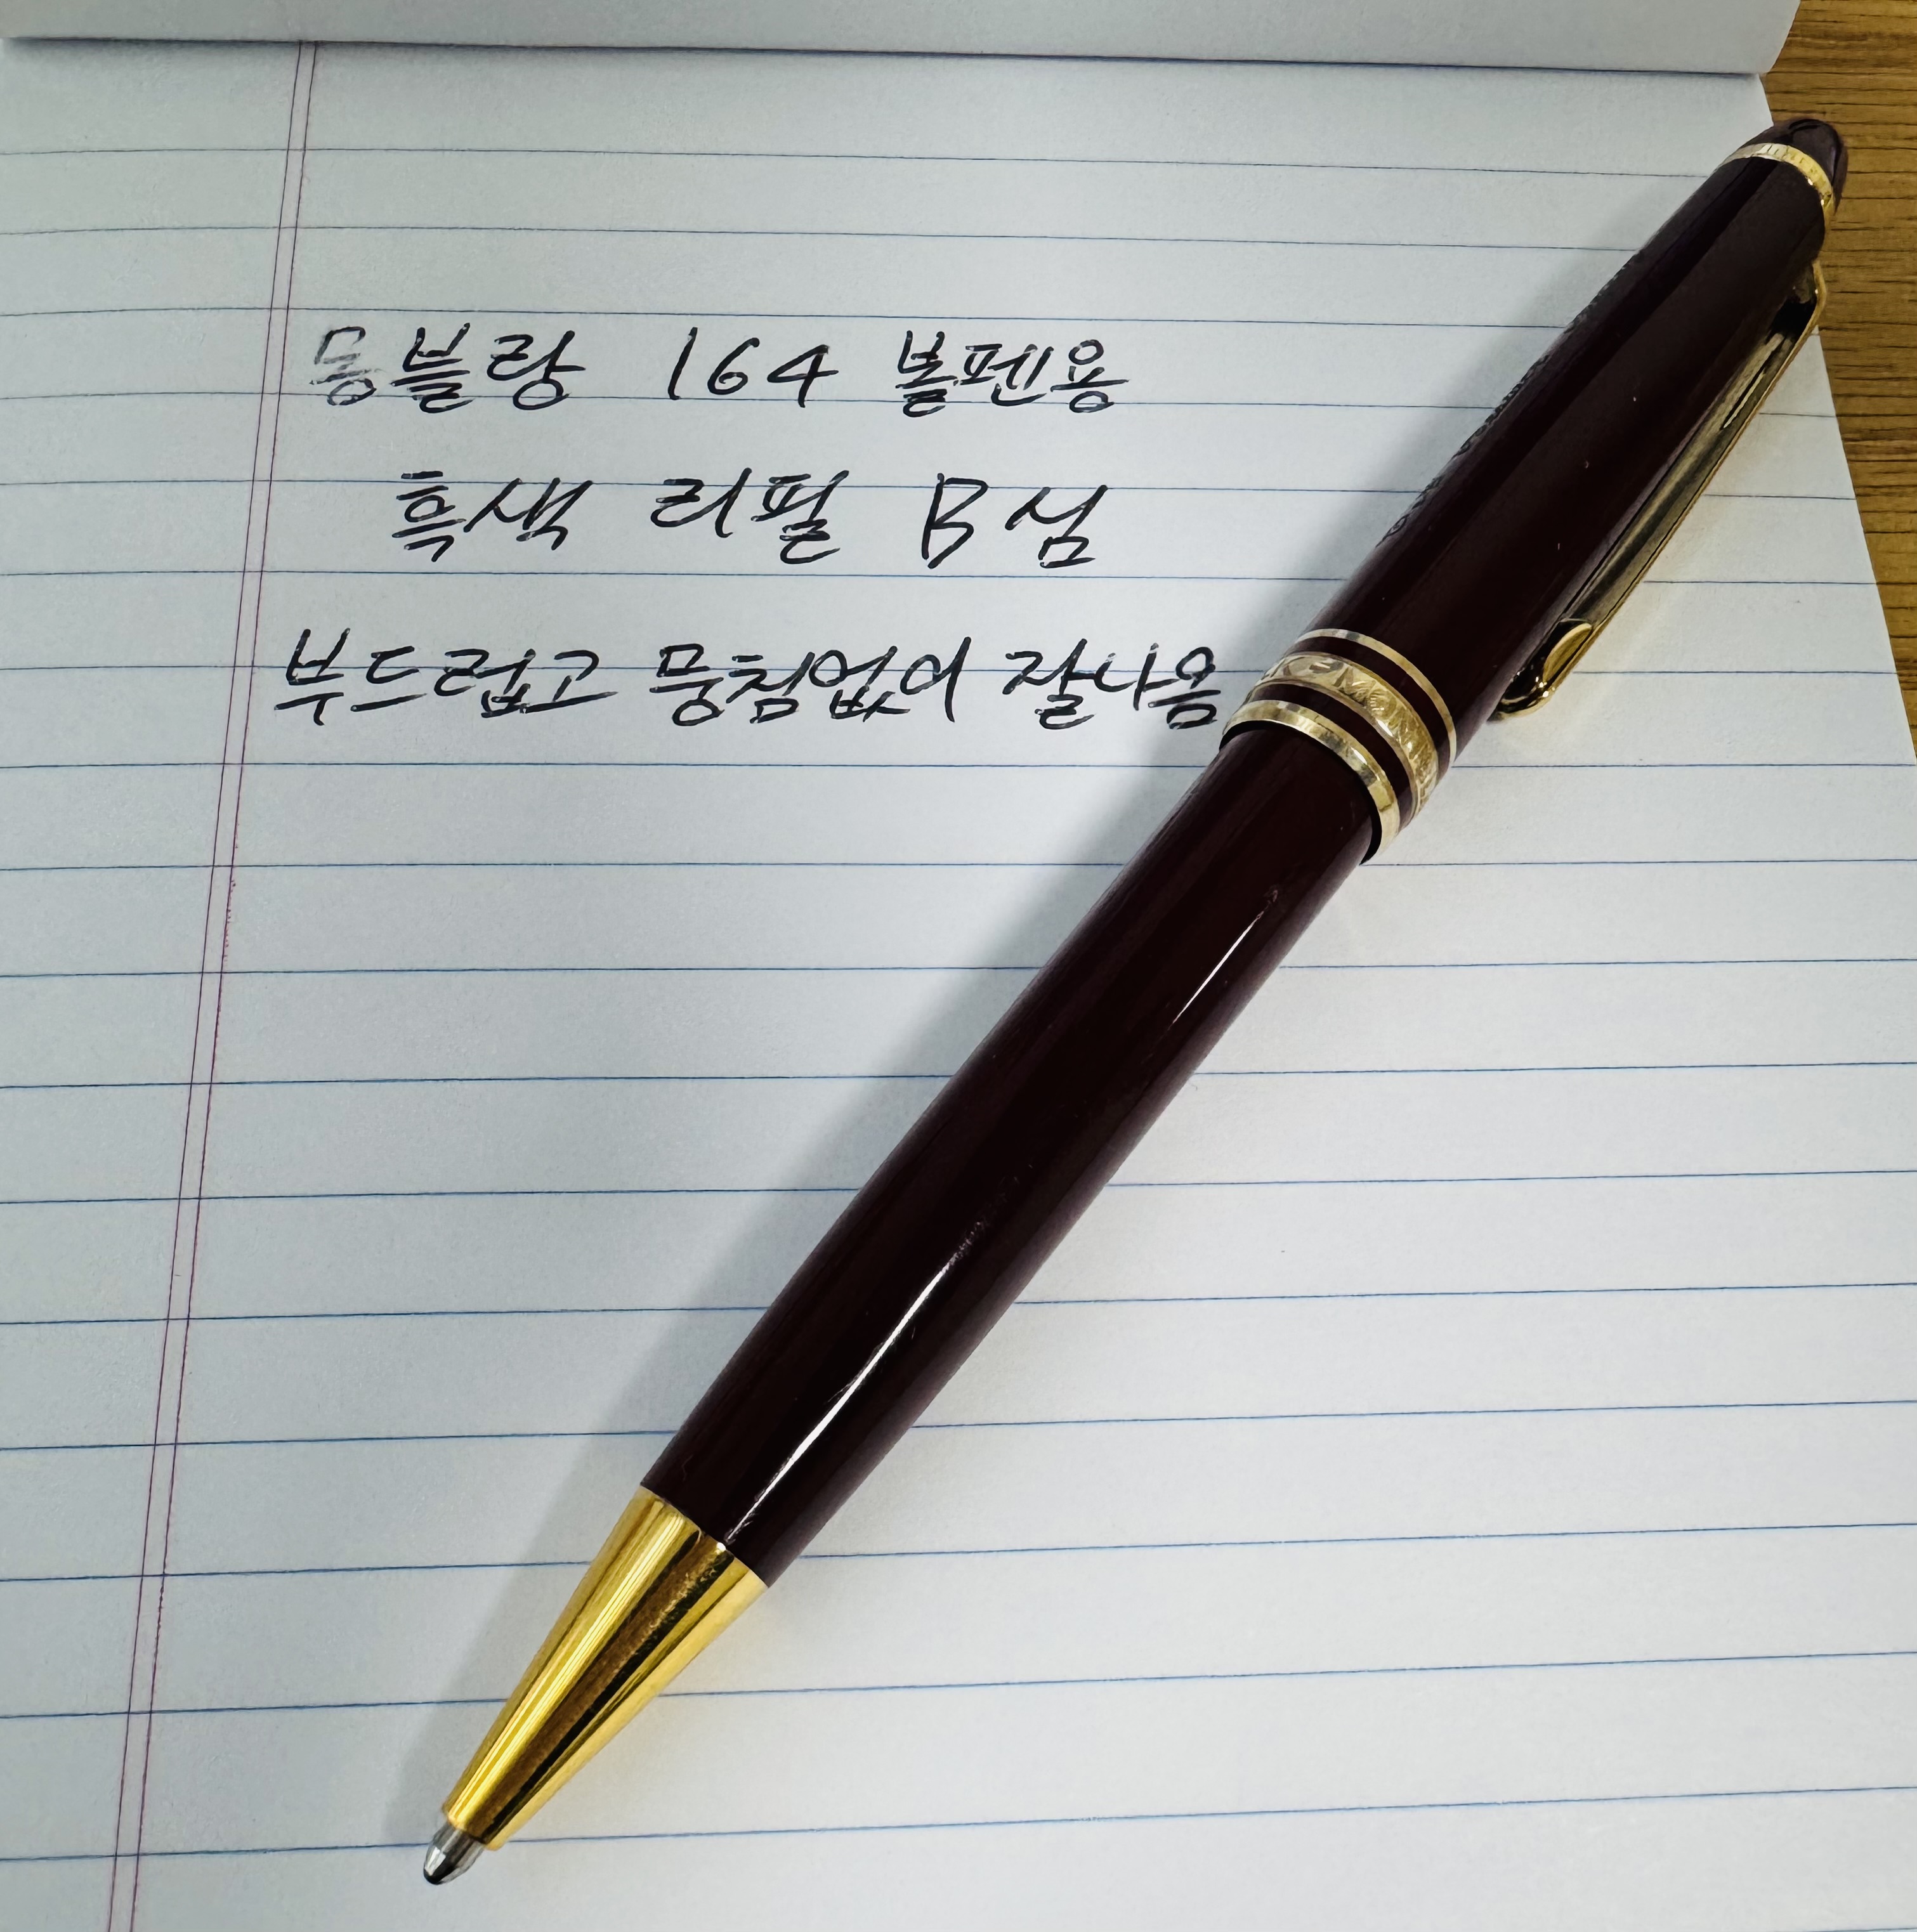 몽블랑 164 볼펜용
흑색 리필 B심
부드럽고 뭉침없이 잘나옴